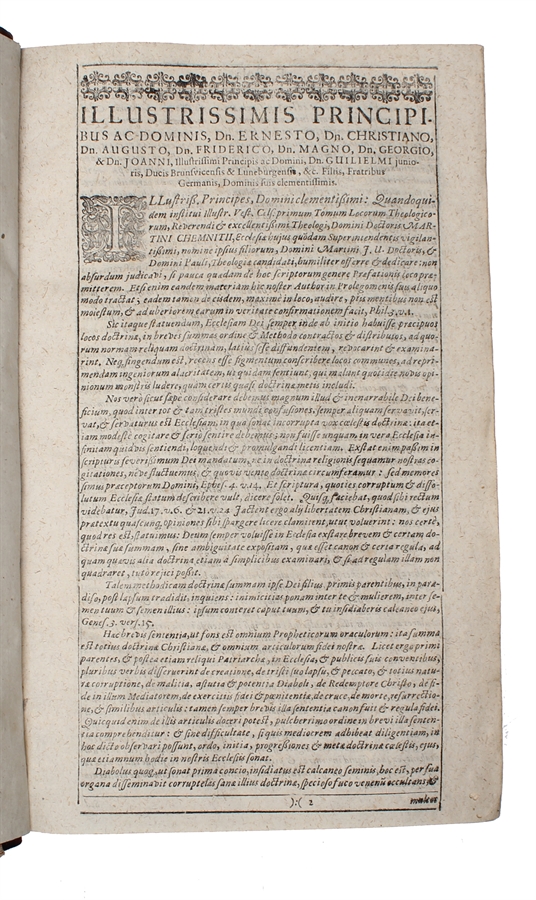 ILLUSTRISSIMIS PRINCIPI-
BUS AC DOMINIS, Dn. ERNESTO, Dn. CHRISTIANO,
Dn. AUGUSTO, Dn. FRIDERICO, Dn. MAGNO, Dn. GEORGIO,
& Dn. JOANNI, Illustrissimi Principis ac Domini, Dn. GUILIELMI junio-
ris, Ducis Brunsvicensis & Luneburgensis, &c. Filiis, Fratribus
Germanis, Dominis suis clementissimis.
ILLustriss. Principes, Domini clementissimi: Quandoqui-
dem institui Illustr. Vest. Cels. primum Tomum Locorum Theologico-
rum, Reverendi & excellentissimi Theologi, Domini Doctoris MAR-
TINI CHEMNITII, Ecclesiæ hujus quondam Superintendentis vigilan-
tissimi, nomine ipsius filiorum, Domini Martini J. U. Doctoris, &
Domini Pauli, Theologiæ candidati, humiliter offerre & dedicare: non
absurdum judicavi, si pauca quædam de hoc scriptorum genere Præfationis loco præ-
mitterem. Etsi enim eandem materiam hic noster Author in Prolegomenis suo aliquo
modo tractat; eadem tamen de iisdem, maximè in loco, audire, piis mentibus non est
molestum, & ad uberiorem earum in veritate confirmationem facit, Phil. 3. v. 1.
Sic itaque statuendum, Ecclesiam Dei semper inde ab initio habuisse præcipuos
locos doctrinæ, in breves summas ordine & Methodo contractos & distributos, ad quo-
rum normam reliquam doctrinam, latius sese diffundentem, revocarint & examina-
rint. Neq; fingendum est, recens esse figmentum conscribere locos communes, ad repri-
mendam ingeniorum alacritatem, ut quidam sentiunt, qui malunt quotidie novis opi-
nionum monstris ludere, quàm certis quasi doctrinæ metis includi.
Nos verò sicut sæpe considerare debemus magnum illud & inenarrabile Dei bene-
ficium, quod inter tot & tam tristes mundi confusiones, semper aliquam servavit, ser-
vat, & servaturus est Ecclesiam, in qua sonat incorrupta vox cœlestis doctrinæ: ita et-
iam modestè cogitare & seriò sentire debemus; non fuisse unquam in vera Ecclesia in-
finitam quidvis sentiendi, loquendi & promulgandi licentiam. Exstat enim passim in
scripturis severissimum Dei mandatum, ne in doctrina religionis sequamur nostras co-
gitationes, neve fluctuemus, & quovis vento doctrinæ circumferamur: sed memores
simus præceptorum Domini, Ephes. 4. v. 14. Et scriptura, quoties corruptum & disso-
lutum Ecclesiæ statum describere vult, dicere solet. Quisq; faciebat, quod sibi rectum
videbatur, Jud. 17. v. 6. & 21. v. 24 Jactent ergo alij libertatem Christianam, & ejus
prætextu quascunq; opiniones sibi spargere licere clamitent, utut voluerint: nos certè,
quod res est, statuimus: Deum semper voluisse in Ecclesia exstare brevem & certam do-
ctrinæ suæ summam, sine ambiguitate expositam, quæ esset canon & certa regula, ad
quam quævis alia doctrina etiam à simplicibus examinari, & si ad regulam illam non
quadraret, tutò rejici possit.
Talem methodicam doctrinæ summam ipse Dei filius primis parentibus, in para-
diso, post lapsum tradidit, inquiens: inimicitias ponam inter te & mulierem, inter se-
men tuum & semen illius: ipsum conteret caput tuum, & tu insidiaberis calcaneo ejus,
Genes. 3. vers. 15.
Hæc brevis sententia, ut fons est omnium Propheticorum oraculorum: ita summa
est totius doctrinæ Christianæ, & omnium articulorum fidei nostræ. Licet ergo primi
parentes, & postea etiam reliqui Patriarchæ, in Ecclesia, & publicis suis conventibus,
pluribus verbis disseruerint de creatione, de tristi suo lapsu, & peccato, & totius natu-
ræ corruptione, de malitia, astutia & potentia Diaboli, de Redemptore Christo, de fi-
de in illum Mediatorem, de exercitiis fidei & pœnitentia, de cruce, de morte, resurrectio-
ne, & similibus articulis: tamen semper brevis illa sententia canon fuit & regula fidei.
Quicquid enim de illis articulis doceri potest, pulcherrimo ordine in brevi illa senten-
tia comprehenditur: & sine difficultate, si quis mediocrem adhibeat diligentiam, in
hoc dicto observari possunt, ordo, initia, progressiones & metæ doctrinæ cælestis, ejus,
quæ etiamnum hodie in nostris Ecclesiis sonat.
Diabolus quoq; ut sonat prima concio, insidiatus est calcaneo seminis, hoc est, per sua
organa disseminavit corruptelas sanæ illius doctrinæ, specioso fuco venenū occultans, &
):( 2
multos